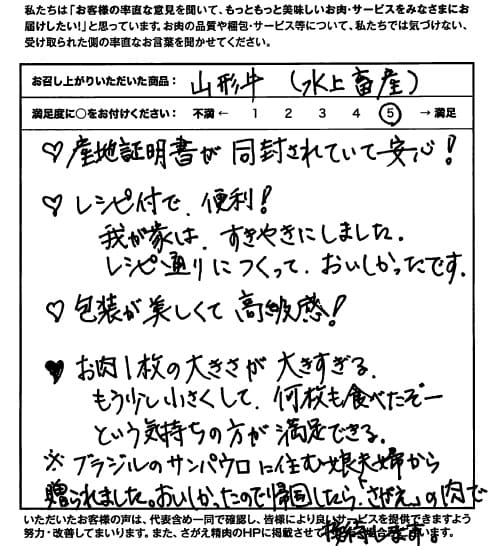 私たちは「お客様の率直な意見を聞いて、もっともっと美味しいお肉・サービスをみなさまにお
届けしたい!」と思っています。お肉の品質や梱包・サービス等について、私たちでは気づけない、
受け取られた側の率直なお言葉を聞かせてください。
お召し上がりいただいた商品: 山形牛 (水上畜産)
満足度に○をお付けください: 不満 ← 1 2 3 4 5 → 満足
♡ 産地証明書が同封されていて安心!
♡ レシピ付で、便利!
我が家は、すきやきにしました。
レシピ通りにつくって、おいしかったです。
♡ 包装が美しくて高級感!
♥ お肉1枚の大きさが大きすぎる、
もう少し小さくして、何枚も食べたぞー
という気持ちの方が満足できる。
※ ブラジルのサンパウロに住む娘夫婦から
贈られました。おいしかったので帰国したら、「さがえ」の肉で
いただいたお客様の声は、代表含め一同で確認し、皆様により良いサービスを提供できますよう
努力・改善してまいります。また、さがえ精肉のHPに掲載させて